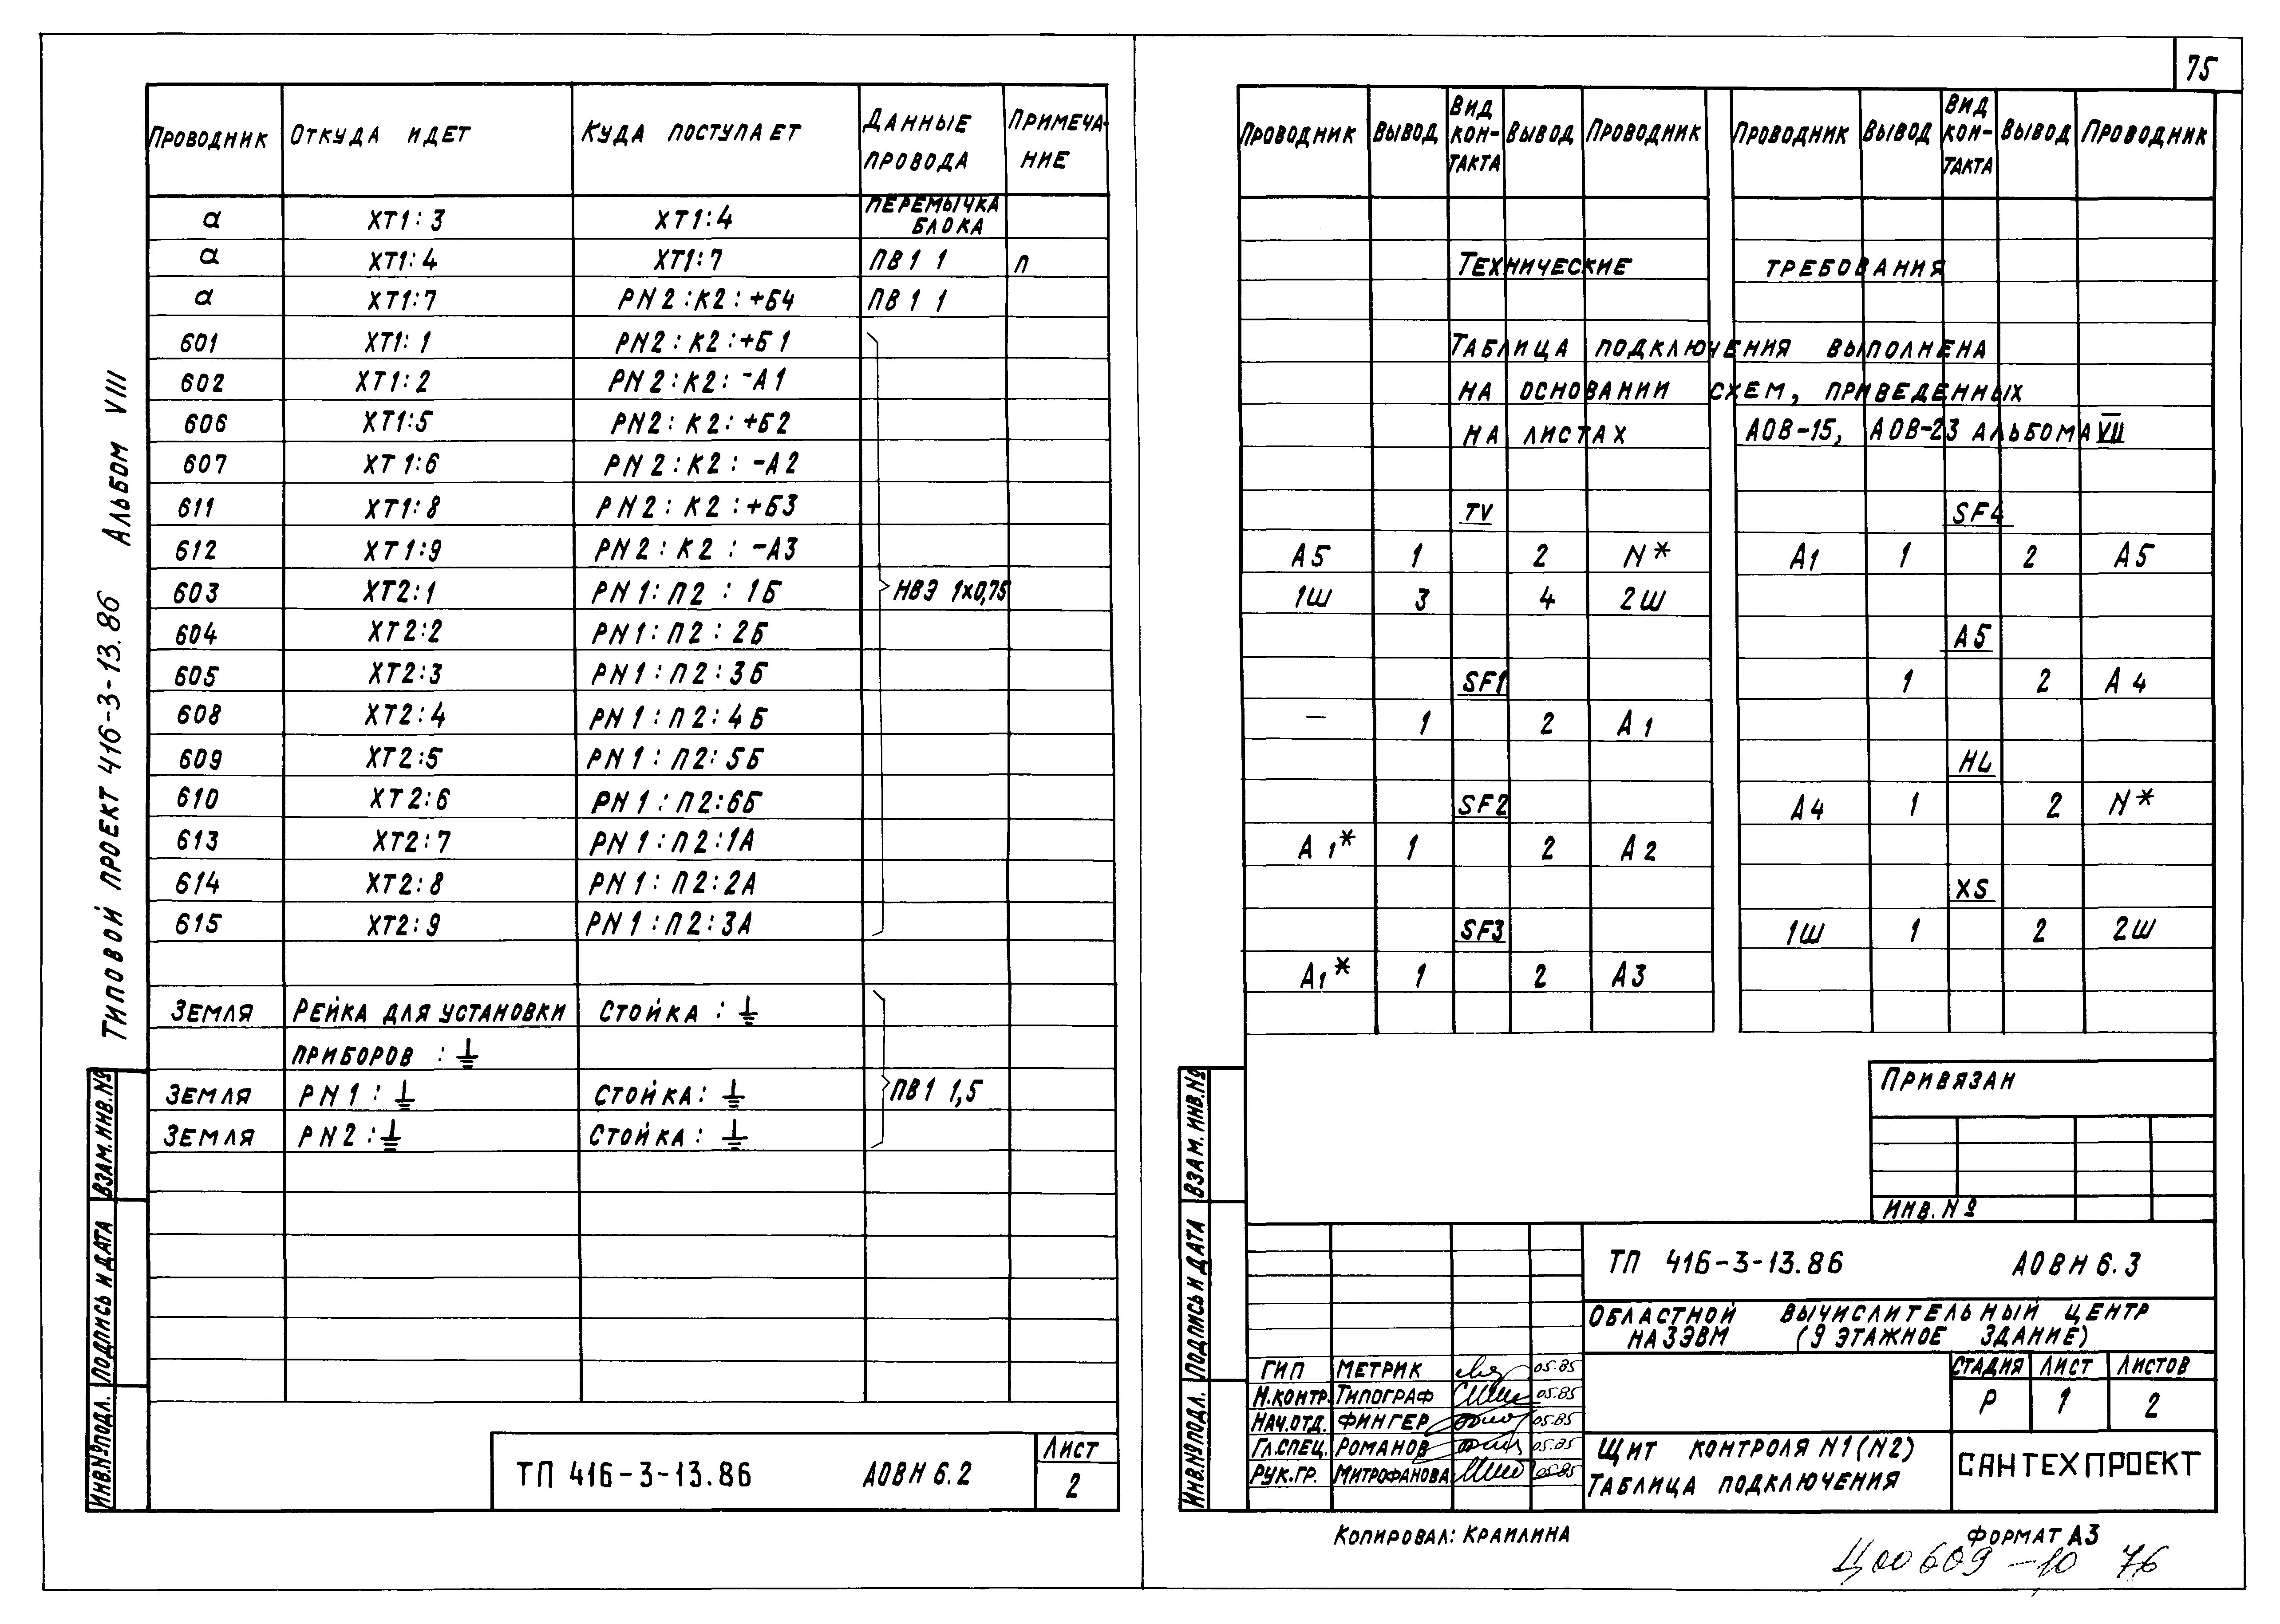 75
Типовой проект 416-3-13.86 Альбом VIII
Проводник Откуда идет Куда поступает Данные провода Примечание
а ХТ1:3 ХТ1:4 Перемычка блока
а ХТ1:4 ХТ1:7 ПВ1 1 п
а ХТ1:7 PN2:К2:+Б4 ПВ1 1
601 ХТ1:1 PN2:К2:+Б1
602 ХТ1:2 PN2:К2:-А1
606 ХТ1:5 PN2:К2:+Б2
607 ХТ1:6 PN2:К2:-А2
611 ХТ1:8 PN2:К2:+Б3
612 ХТ1:9 PN2:К2:-А3
603 ХТ2:1 PN1:П2:1Б НВЭ 1х0,75
604 ХТ2:2 PN1:П2:2Б
605 ХТ2:3 PN1:П2:3Б
608 ХТ2:4 PN1:П2:4Б
609 ХТ2:5 PN1:П2:5Б
610 ХТ2:6 PN1:П2:6Б
613 ХТ2:7 PN1:П2:1А
614 ХТ2:8 PN1:П2:2А
615 ХТ2:9 PN1:П2:3А
Земля Рейка для установки Стойка: ⏚
приборов: ⏚
Земля PN1: ⏚ Стойка: ⏚ ПВ1 1,5
Земля PN2: ⏚ Стойка: ⏚
Взам. инв. №
Подпись и дата
Инв. № подл.
ТП 416-3-13.86 АОВН 6.2
Лист
2
Проводник Вывод Вид контакта Вывод Проводник Проводник Вывод Вид контакта Вывод Проводник
Технические требования
Таблица подключения выполнена
на основании схем, приведенных
на листах АОВ-15, АОВ-23 альбома VII
TV SF4
А5 1 2 N* А1 1 2 А5
1Ш 3 4 2Ш
А5
SF1 1 2 А4
— 1 2 А1
HL
SF2 А4 1 2 N*
А1* 1 2 А2
XS
SF3 1Ш 1 2 2Ш
А1* 1 2 А3
Привязан
Инв. №
Взам. инв. №
Подпись и дата
Инв. № подл.
ТП 416-3-13.86 АОВН 6.3
Областной вычислительный центр
на 3 ЭВМ (9 этажное здание)
ГИП Метрик 05.85
Н.контр. Типограф 05.85
Нач.отд. Фингер 05.85
Гл.спец. Романов 05.85
Рук.гр. Митрофанова 05.85
Стадия Лист Листов
Р 1 2
Щит контроля N1(N2)
Таблица подключения
САНТЕХПРОЕКТ
Копировал: Краилина
Формат А3
Ц00609-10 76